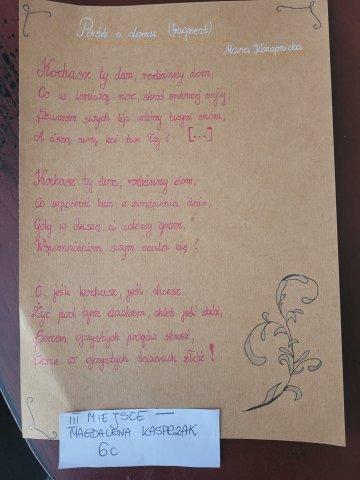 Pieśń o domu (fragment)
Maria Konopnicka
Kochasz ty dom, rodzinny dom,
Co w letnią noc, skroś srebrnej mgły,
Szumem swych lip wtórzy twym snom,
A ciszą swą koi twe łzy? [...]
Kochasz ty dom, rodzinny dom,
Co wpośród burz, w zwątpienia dnie,
Gdy w duszę ci uderzy grom,
Wspomnieniem swym ocala cię?
O, jeśli kochasz, jeśli chcesz
Żyć pod tym dachem, chleb jeść zbóż,
Sercem ojczystych progów strzeż,
Serce w ojczystych ścianach złóż!
III MIEJSCE —
MAGDALENA KASPRZAK
6c